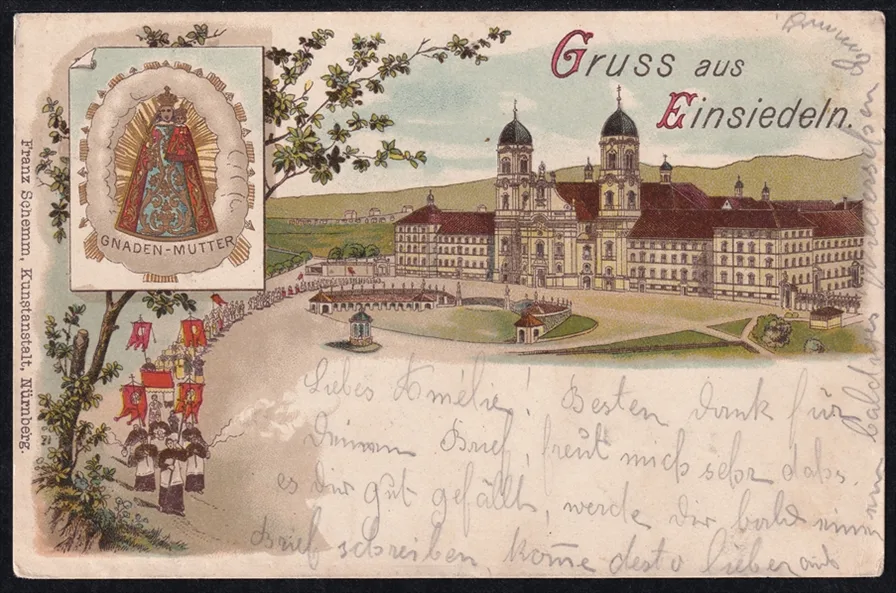 Gruss aus
Einsiedeln.
GNADEN-MUTTER
Franz Schemm, Kunstanstalt, Nürnberg.
Liebes Amélie! Besten Dank für
Deinen Brief, freut mich sehr dass
es dir gut gefällt, werde dir bald einen
Brief schreiben, kom̄e desto lieber